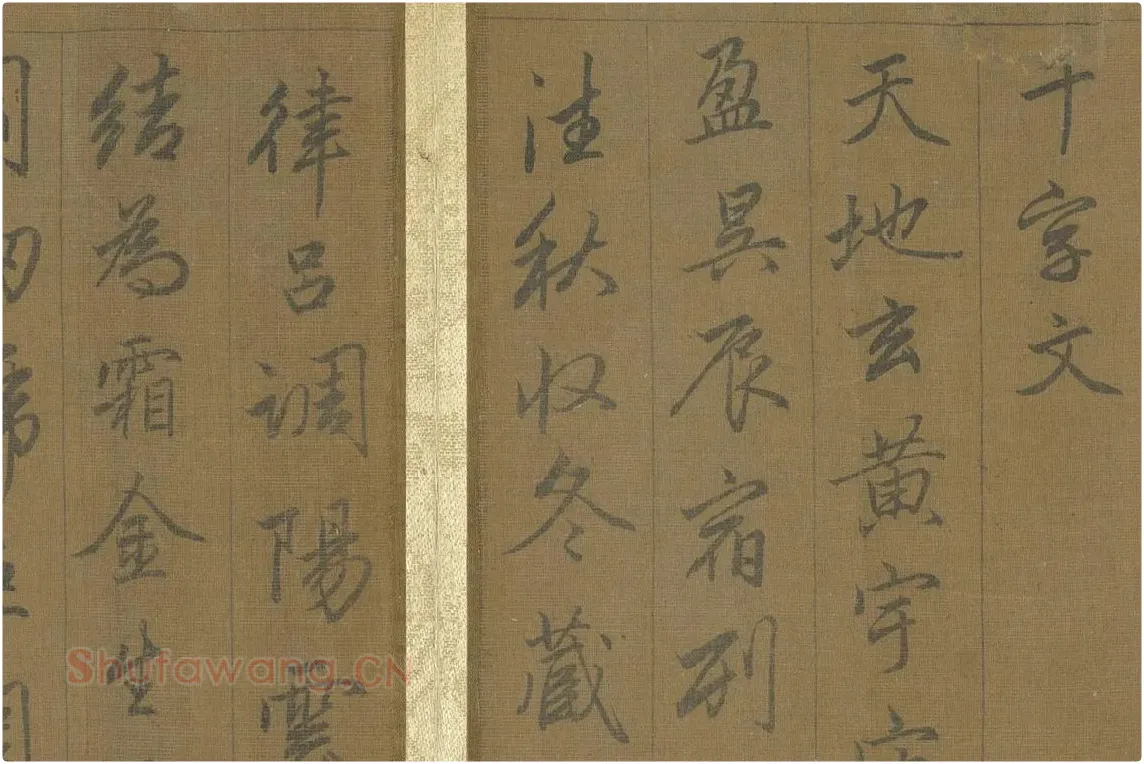 千字文
天地玄黄宇
盈昃辰宿列
往秋収冬藏
律吕調陽雲
結為霜金生
Shufawang.CN